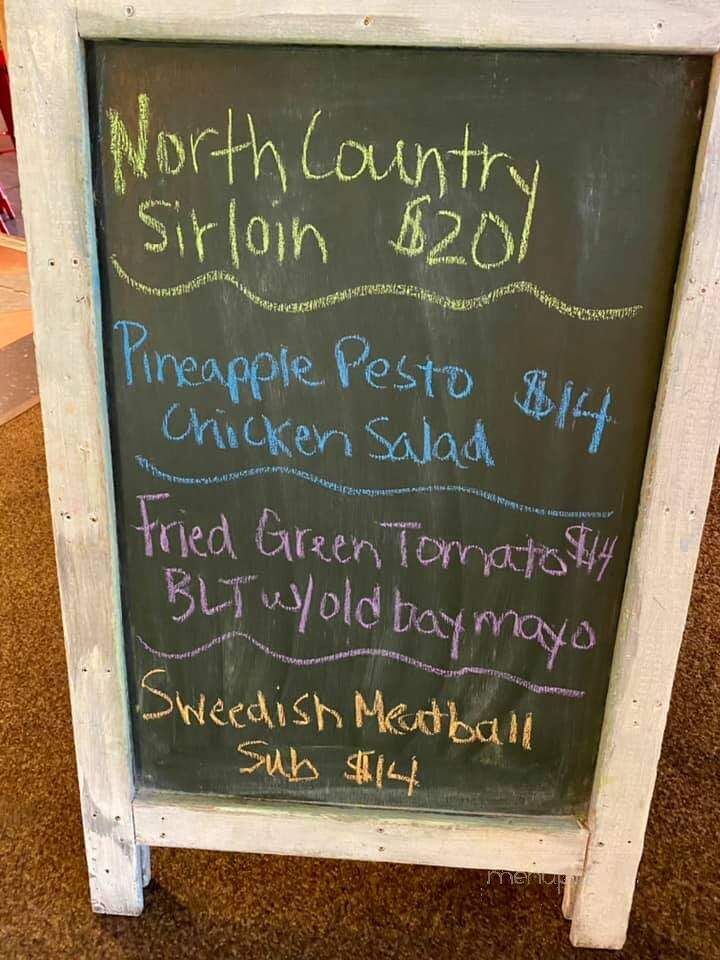 North Country
Sirloin $20
Pineapple Pesto $14
Chicken Salad
Fried Green Tomato $14
BLT w/old bay mayo
Swedish Meatball
Sub $14